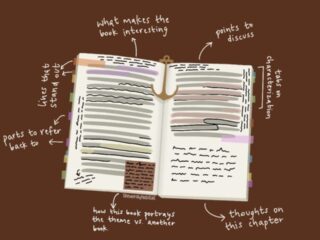 what makes the
book interesting
points to
discuss
lines that
stand out
tabs on
characterization
parts to refer
back to
how this book portrays
the theme vs. another
book
thoughts on
this chapter